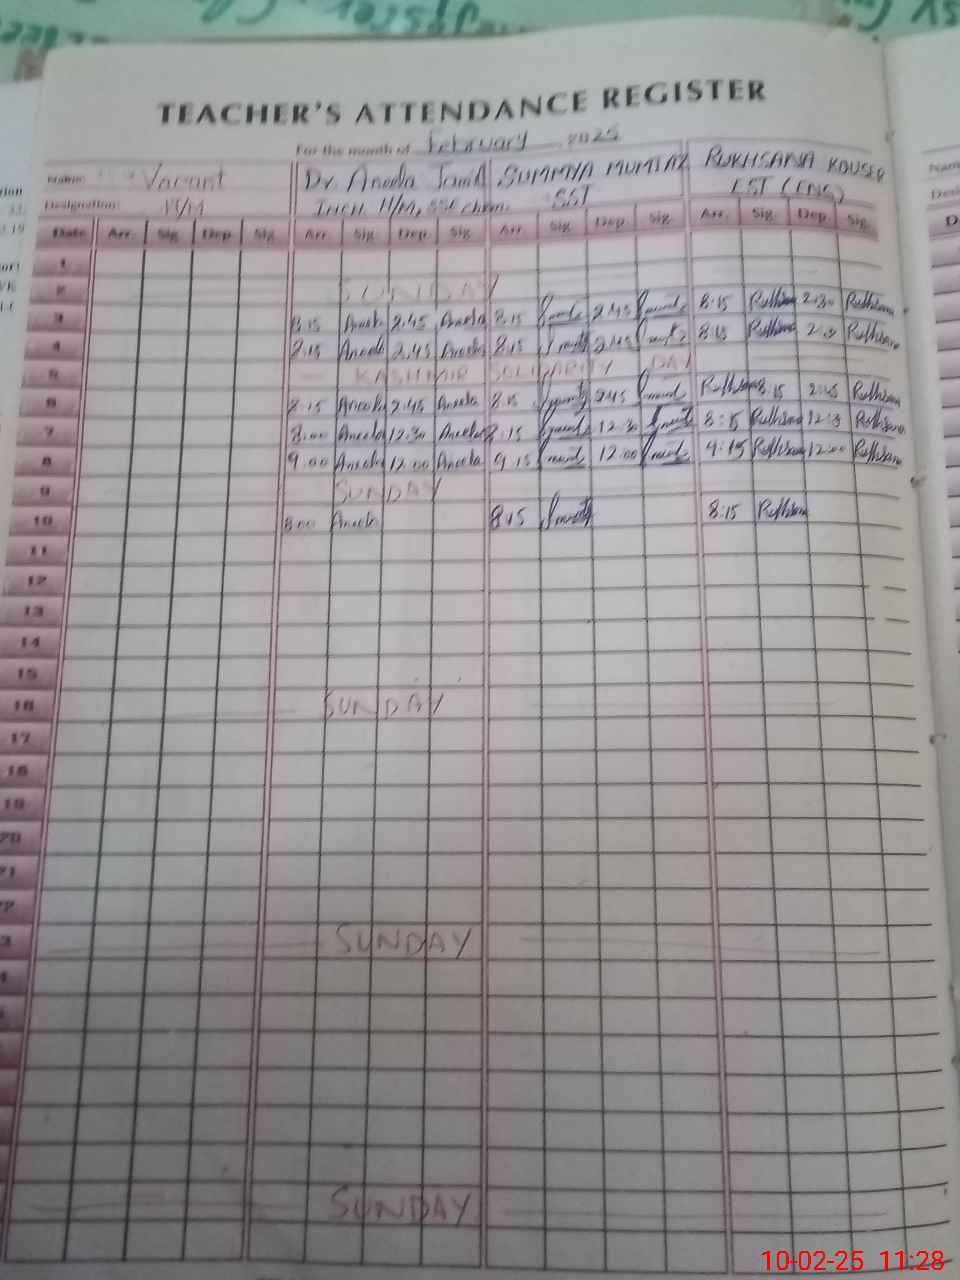 TEACHER'S ATTENDANCE REGISTER
For the month of February 2025
Name Vacant Dr. Aneela SUMMYA MUMTAZ RUKHSANA KOUSER
Designation H/M Inch. H/M, SSE chem. SST EST (ENG)
Date Arr. Sig. Dep. Sig. Arr. Sig. Dep. Sig. Arr. Sig. Dep. Sig. Arr. Sig. Dep. Sig.
1
2 SUNDAY
3 8:15 Aneela 2.45 Aneela 8:15 2:45 8:15 Rukhsana 2:30 Rukhsana
4 8:15 Aneela 2.45 Aneela 8:15 2:45 8:15 Rukhsana Rukhsana
5 KASHMIR SOLIDARITY DAY
6 8:15 Aneela 2:45 Aneela 8:15 2:45 Rukhsana 8:15 2:45 Rukhsana
7 8:00 Aneela 12:30 Aneela 8:15 12:30 8:15 Rukhsana 12:3 Rukhsana
8 9:00 Aneela 12:00 Aneela 9:15 12:00 9:15 Rukhsana 12:00 Rukhsana
9 SUNDAY
10 8:00 Aneela 8:15 8:15 Rukhsana
11
12
13
14
15
16 SUNDAY
17
18
19
20
21
22
3 SUNDAY
SUNDAY
10-02-25 11:28